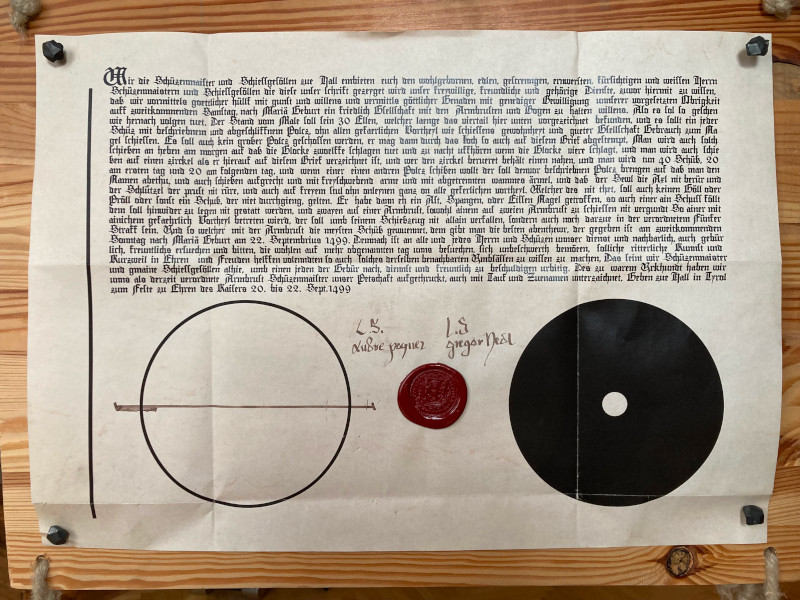 Wir die Schüzenmaister und Schiessgesöllen zue Hall embieten euch den wohlgebornen, edlen, gestrengen, ernvesten, fürsichtigen und weissen Herrn
Schüzenmaistern und Schiessgesöllen die diese unser schrifft gezeiget wird unser freywillige, freundliche und gehörige Dienste, zuvor hiermit zu wissen,
daß wir vormittels goettlicher hülff mit gunst und willens und vermitls göttlicher Genaden mit genediger Bewilligung unnserer vorgesetzten Obrigkeit
auff zweitkommenden Samstag, nach Mariä Geburt ein friedlich Gesellschafft mit den Armbrusten und Bogen zu halten willens. Also es sol so geschen
wie hernach volgen tuet. Der Stand vom Male soll sein 30 Ellen, welcher lannge das viertail hier unten vorgezeichnet befunden, und es sollt ein jeder
Schüz mit beschriebnem und abgeschliffnem Polcz, ohn allen gefaerlichen Vortheyl wie schiessens gewohnheyt und gueter Gsellschaft Gebrauch zum Na
gel schiessen. Es soll auch kein grober Polcz geschossen werden, er mag dann durch das loch so auch auf diesem Brief abgestempt. Man wird auch solch
schieben an heben am morgen auf daß die Glocke zwoelffe schlagen tuet und zu nacht uffhüren wenn die Glocke viere schlagt, und man wird auch schie
ben auf einen zirckel als er hierauf auf diesem Brief verzeichnet ist, und wer den zirckel beruert behält einen nahen, und man wird nun 40 Schüß, 20
am ersten tag und 20 am folgenden tag, und wenn einer einen andern Polcz schiben wollt der soll demar beschribnem Polcz brengen auf daß man den
Namen abethu, und auch schieben aufgerecht und mit freyschwebend arme und mit abgetrennten wammes ärmel, und daß der Seul die Achsel nit berür und
der Schlüzel der prust nit rürt, und auch auf freyem stul ohn anlernen ganz on alle geferlichen vortheyl. Welcher des nit thet, soll auch keinen Göll oder
Pröll oder sonst ein Schuß, der niet durchgieng, gelten. Er habe dann eh ein Ast, Spangen, oder Eissen Nagel getroffen, so auch einer ain Schuß föllt
dem soll hinwider zu legen nit gestat werden, und zwaren auf einer Armbrust, sowohl ainem auf zweien Armbrust zu schiessen nit vergundt So ainer mit
ainichem gefährlich Vortheyl betretten wird, der soll umb seinem Schiebzeug nit allain verfallen, sondern auch noch darzue in der verordneten Fünfer
Straff sein. Und so welcher mit der Armbrust die mersten Schüß gewunnet, dem gibt man die besten abentheur, der gegeben ist am zweitkommenden
Sonntag nach Mariä Geburt am 22. Septembrius 1499. Demnach ist an alle und jedes Herrn und Schüzen unnser dienst und nachbarlich, auch gebür
lich, freuntliches ersuchen und bitten, die wohlen auf mehr abgenannten tag unns besuechen, sich unbeschwerth bemüehen, solliche ritterliche Kunnst und
Kurzweil in Ehren und Freuden helffen volennden so auch solches derselben benachbarten Umbsässen zu wissen zu machen, Das seint wir Schüzenmaister
und gmaine Schiessgesöllen alhie, umb einen jeden der Gebür nach, dinnst und freuntlich zu beschuldigen urbitig. Des zu warem Urkhundt haben wir
unns als derzeit verordnete Armbrust Schüzenmaister unser Petschaft aufgethruckt, auch mit Tauf und Zuenamen unterzaichnet. Geben zue Hall in Tyrol
zum Feste zu Ehren des Kaisers 20. bis 22. Sept. 1499
L.S. L.S
gregor